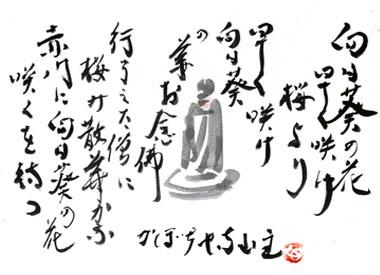 向日葵の花
早く咲け
桜より
早く咲け
向日葵
の
華お念佛
行了えた僧に
梅 散華かな
赤門に向日葵の花
咲くを待つ
かぼちゃ寺山主